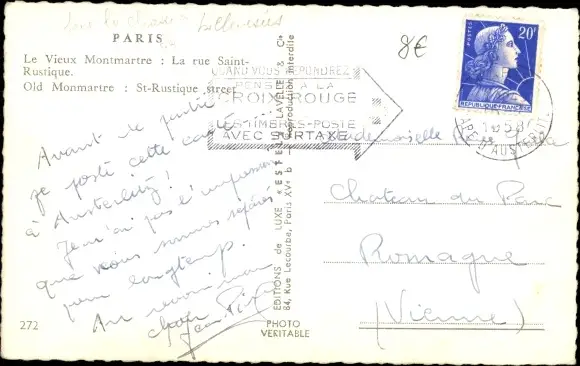 PARIS
Le Vieux Montmartre : La rue Saint-
Rustique.
Old Monmartre : St-Rustique street
8€
QUAND VOUS RÉPONDREZ
PENSEZ A LA
CROIX-ROUGE
LES TIMBRES-POSTE
AVEC SURTAXE
POSTES
20F
REPUBLIQUE-FRANÇAISE
Avant de partir
je poste cette carte
à Austerlitz !
Je n'ai pas l'impression
que nous sommes séparés
pour longtemps.
Au revoir
Jean
Mademoiselle
Chateau du Parc
Romagne
(Vienne)
EDITIONS de LUXE ESTEL LAVELLE & Cie
64, Rue Lecourbe, Paris XVe Reproduction interdite
272
PHOTO
VERITABLE